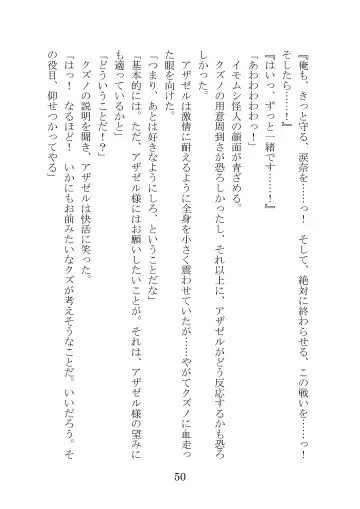 『俺も、きっと守る、涙奈を……っ！　そして、絶対に終わらせる、この戦いを……っ！
そしたら……！』
『はいっ、ずっと一緒です……！』
「あわわわわわっ！」
イモムシ怪人の顔面が青ざめる。
クズノの用意周到さが恐ろしかったし、それ以上に、アザゼルがどう反応するかも恐ろ
しかった。
アザゼルは激情に耐えるように全身を小さく震わせていたが……やがてクズノに血走っ
た眼を向けた。
「つまり、あとは好きなようにしろ、ということだな」
「基本的には。ただ、アザゼル様にはお願いしたいことが。それは、アザゼル様の望みに
も適っているかと」
「どういうことだ！？」
クズノの説明を聞き、アザゼルは快活に笑った。
「はっ！　なるほど！　いかにもお前みたいなクズが考えそうなことだ。いいだろう。そ
の役目、仰せつかってやる」
50